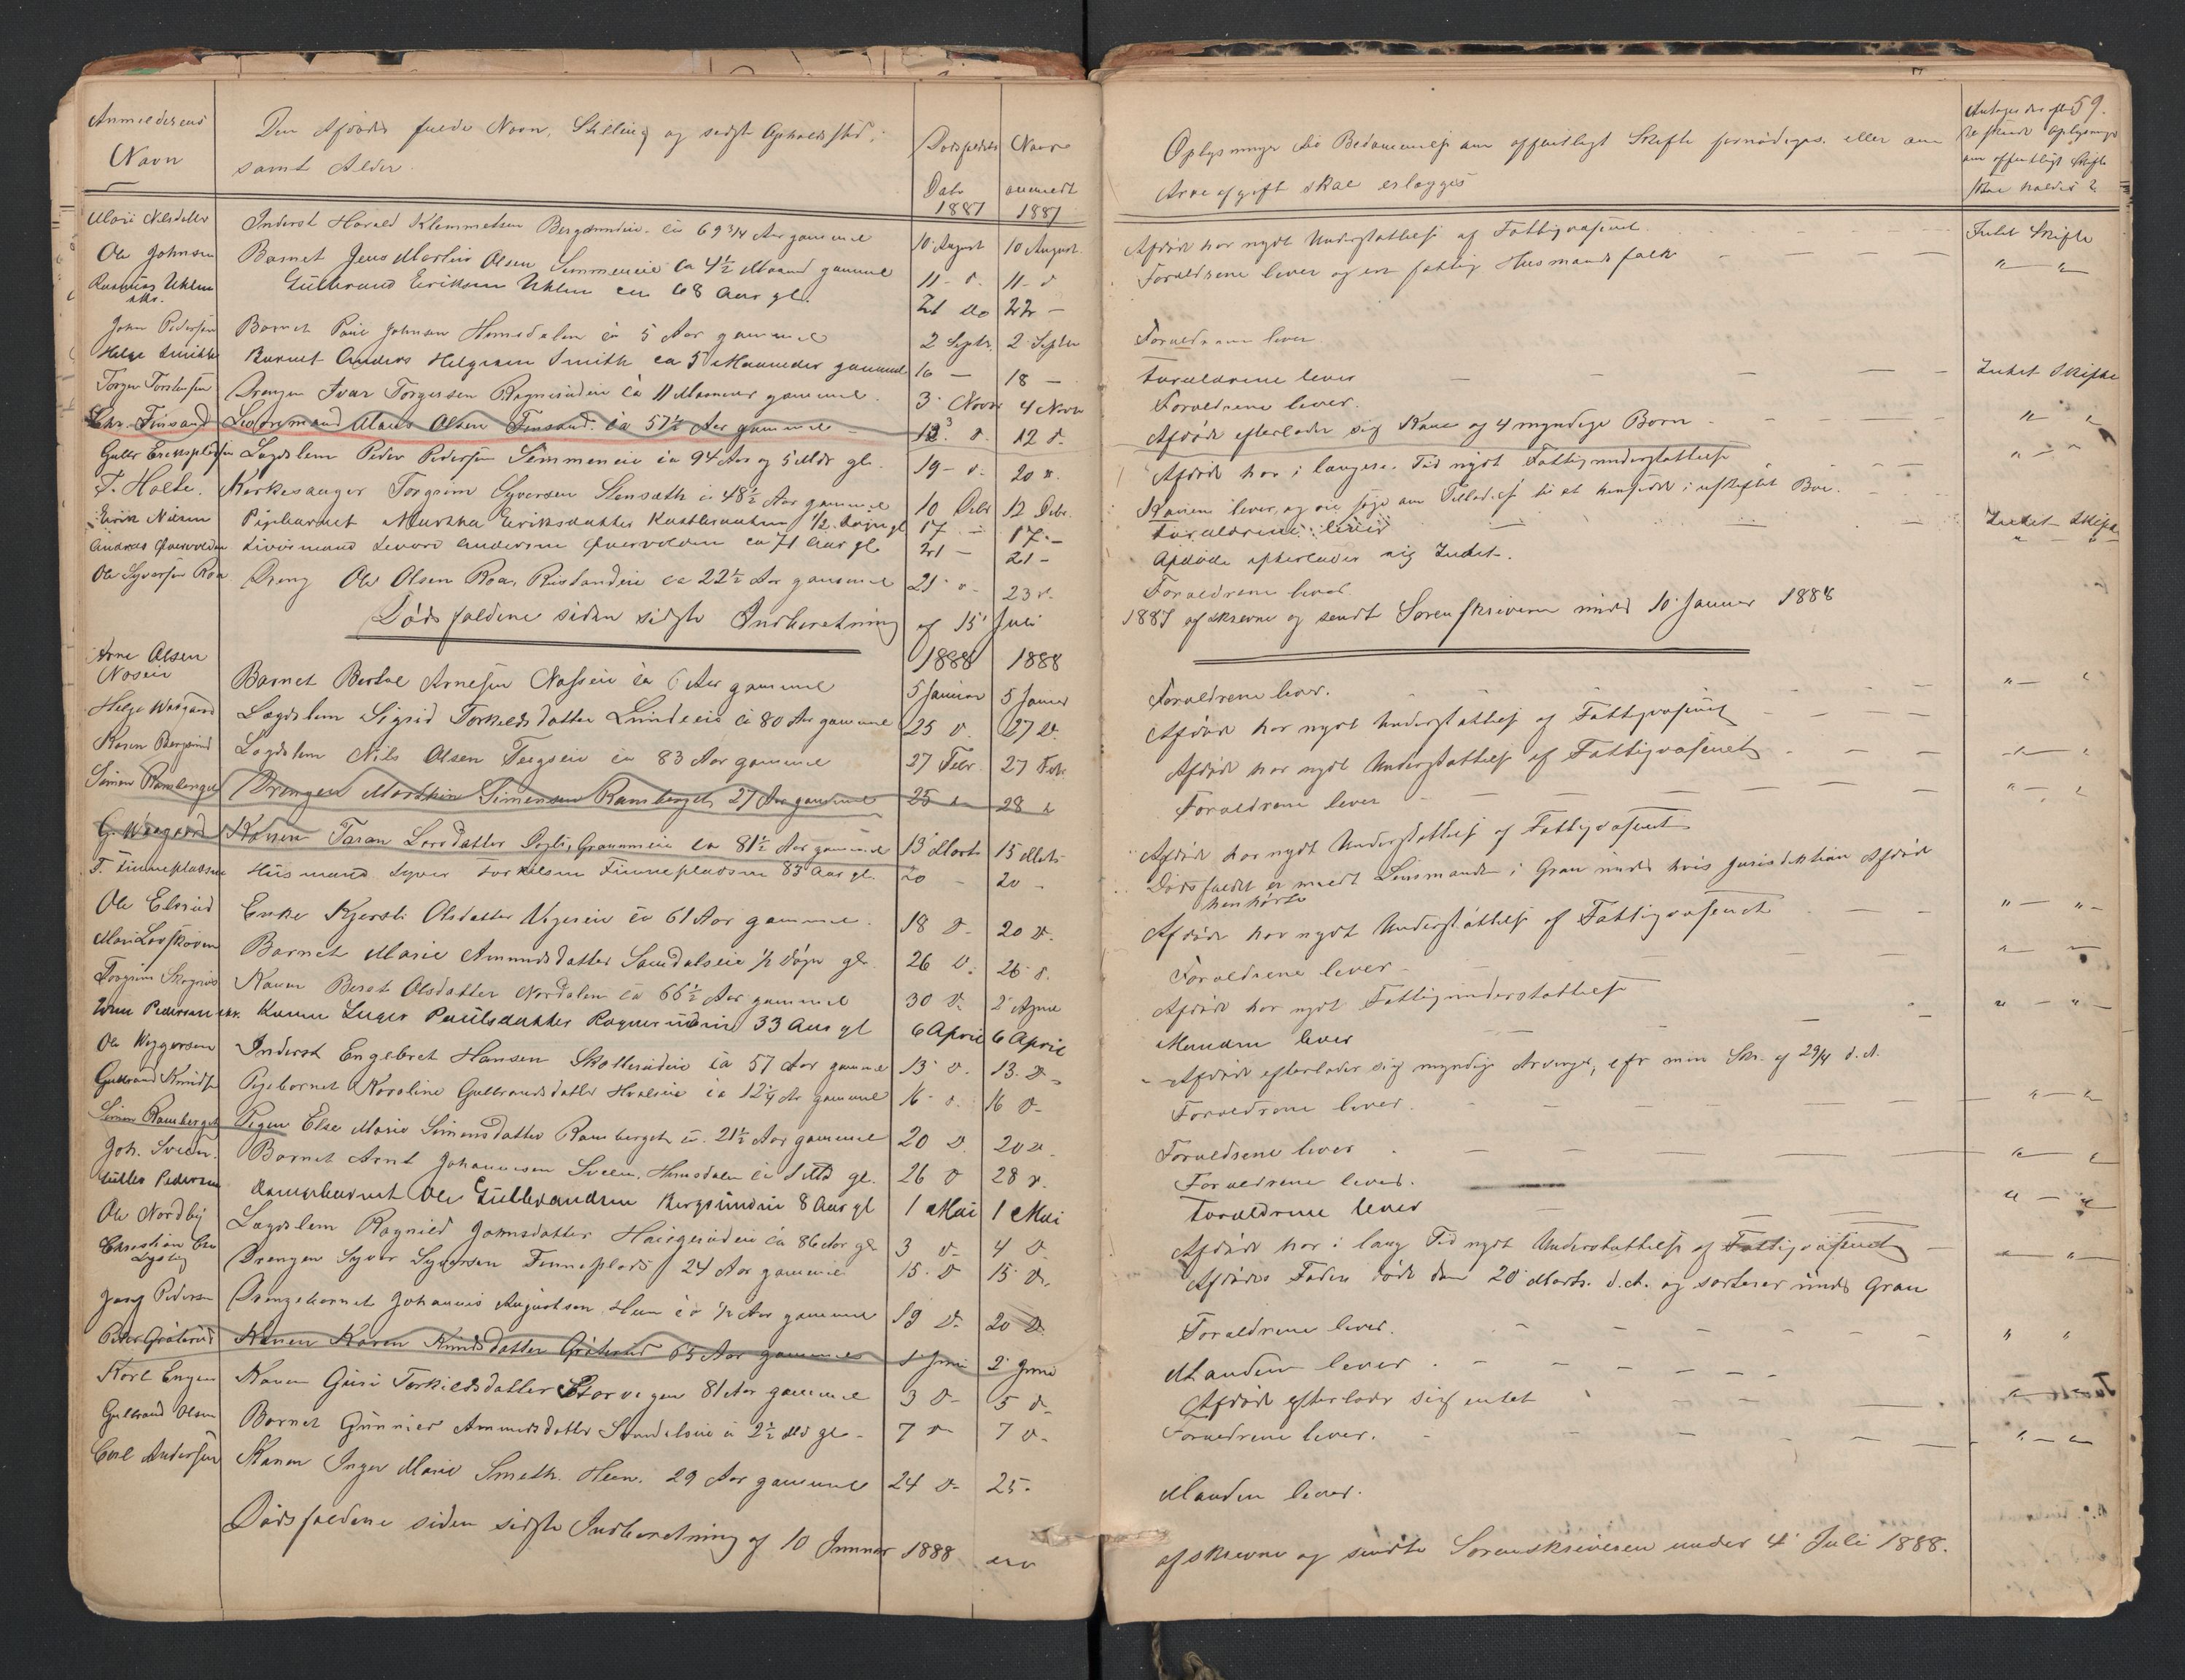 59.
Anmelderens Navn
Den Afdødes fulde Navn, Stilling og sidste Opholdssted,
samt Alder.
Dødsfaldets Dato 1887
Naar anmeldt 1887
Oplysninger til Bedømmelse om offentligt Skifte fornødiges, eller om
Arveafgift skal erlægges
om offentligt Skifte skal holdes?
Mari Nilsdatter Inderst Harald Klemmetsen ca 69 3/4 Aar gammel 10 August 10 August Afdøde har nydt Understøttelse af Fattigvæsenet Intet Skifte
Ole Johnsen Barnet Jens Martin Olsen Simmeneie ca 4½ Maaned gammel 11 d. 11 d Forældrene lever og ere fattig Husmandsfolk " — "
Rasmus Uhlen Gulbrand Eriksen Uhlen ca 68 Aar gl. 21 do 22 —
John Pedersen Barnet Paul Johnsen Hemsdalen ca 5 Aar gammel 2 Septr. 2 Septbr Forældrene lever
Helge Smith Barnet Anders Helgesen Smith ca 5 Maaneder gammel 16 — 18 — Forældrene lever Intet Skifte
Torger Torstensen Drengen Ivar Torgersen Ragnrudeie ca 11 Maaneder gammel 3 Novbr 4 Novbr Forældrene lever. " "
Chr. Finsand Maens Olsen Finsand ca 57½ Aar gammel 12 d. 12 d. Afdøde efterlader sig Kone og 4 myndige Børn
Lægdslem Peder Pedersen Simmeneie ca 94 Aar og 5 Mdr gl. 19 d. 20 d. Afdøde har i længere Tid nydt Fattigunderstøttelse
T. Holte. Kirkesanger Torgrim Syversen Stensæth ca 48½ Aar gammel 10 Debr 12 Debr. Konen lever, og vil søge om Tilladelse til at hensidde i uskiftet Boe.
Eirik Nilsen Pigebarnet Martha Eriksdatter ½ Døgn gl 17 — 17 — Forældrene lever Intet Skifte
Andreas Qvervolden Livøremand Levord Andersen Qvervolden ca 71 Aar gl 21 — 21 — Afdøde efterlader sig Intet.
Ole Syversen Roa Dreng Ole Olsen Roa, ca 22½ Aar gammel 21 d. 23 d. Forældrene lever
Dødsfaldene siden sidste Indberetning af 15 Juli 1887 afskrevne og sendt Sorenskriveren under 10 Januar 1888
1888 1888
Arne Olsen Næseie Barnet Bertel Arnesen Næseie ca 6 Aar gammel 5 Januar 5 Januar Forældrene lever. " — "
Helge Waagaard Lægdslem Sigrid Torkelsdatter Lundeeie ca 80 Aar gammel 25 d. 27 d. Afdøde har nydt Understøttelse af Fattigvæsenet
Karen Bergsrud Lægdslem Nils Olsen ca 83 Aar gammel 27 Febr. 27 Feb. Afdøde har nydt Understøttelse af Fattigvæsenet " — "
Simen Ramberget Drengen Mathias Simensen Ramberget 27 Aar gammel 25 d 28 d Forældrene lever " — "
G. Waagaard Konen Taran Larsdatter ca 81½ Aar gammel 13 Marts 15 Marts Afdøde har nydt Understøttelse af Fattigvæsenet
T. Finneplassen Husmand Syver Torkelsen Finnepladsen 83 Aar gl. 20 — 20 — Dødsfaldet er meldt Lensmanden i Gran under hvis Jurisdiktion Afdøde
henhørte
Ole Elsrud Enke Kjersti Olsdatter ca 61 Aar gammel 18 d. 20 d. Afdøde har nydt Understøttelse af Fattigvæsenet " — "
Barnet Marie Amundsdatter Samdalseie ½ Døgn gl. 26 d. 26 d. Forældrene lever
Konen Berat Olsdatter Nordalen ca 66½ Aar gammel 30 d. 2 April Afdøde har nydt Fattigunderstøttelse " — "
Konen Inger Paulsdatter Ragnrudeie 33 Aar gl 6 April 6 April Manden lever
Ole Viggersen Inderst Engebret Hansen ca 57 Aar gammel 13 d. 13 d. Afdøde efterlader sig myndige Arvinger, efr min Skr. af 29/4 d.A.
Gulbrand Knudsen Pigebarnet Karoline Gulbrandsdatter Hvalseie ca 12¼ Aar gammel 16 d. 16 d. Forældrene lever. " — "
Simen Ramberget Pigen Else Marie Simensdatter Ramberget ca 21½ Aar gammel 20 d. 20 d. Forældrene lever " — "
Joh. Sveen. Barnet Arnt Johannesen Sveen, Hemsdalen ca 1 Md gl. 26 d 28 d. Forældrene lever.
Gulbr Pedersen Ole Gulbrandsen Bergsrudeie 8 Aar gl 1 Mai 1 Mai Forældrene lever " — "
Ole Nordby Lægdslem Ragnild Johnsdatter ca 86 Aar gl 3 d. 4 d. Afdøde har i lang Tid nydt Understøttelse af Fattigvæsenet " — "
Christian Drengen Syver Syversen Finneplads 24 Aar gammel 15 d 15 d. Afdødes Fader døde den 20 Marts d.A. og sorterer under Gran
Pedersen Drengebarnet Johannes Augustsen Heen ca ½ Aar gammel 19 d. 20 d. Forældrene lever. " "
Peder Gråterud Konen Karen Knudsdatter Gråterud 65 Aar gammel 1 Juni 2 Juni Manden lever.
Karl Engen Konen Guri Torkildsdatter Storvegen 81 Aar gammel 3 d. 5 d. Afdøde efterlader sig intet
Gulbrand Olsen Barnet Gunnild Amundsdatter ca 2½ Md gl. 7 d 7 d. Forældrene lever. " — "
Carl Andersen Konen Inger Marie Smeth. Heen. 29 Aar gammel 24 d. 25. Manden lever.
Dødsfaldene siden sidste Indberetning af 10 Januar 1888 ere afskrevne og sendte Sorenskriveren under 4 Juli 1888.